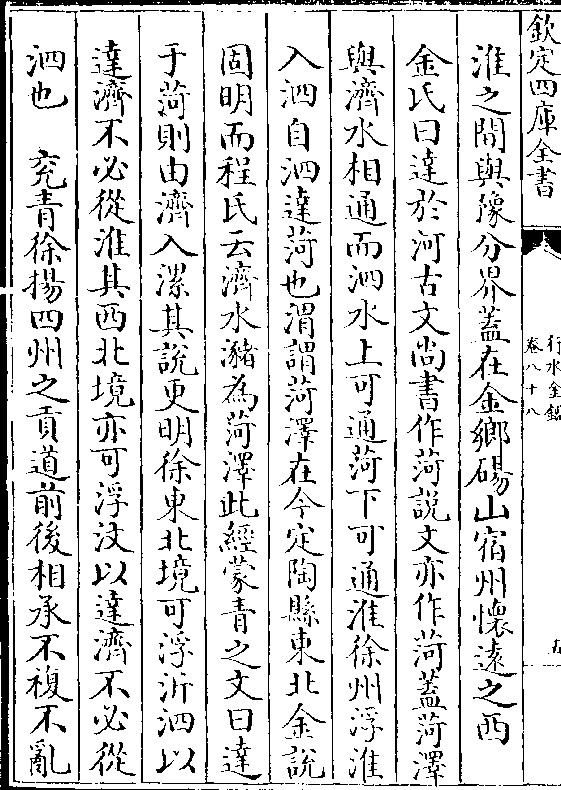 欽定四庫全書
行水金鑑
卷八十八
淮之間與豫分界蓋在金鄉碭山宿州懷遠之西
金氏曰達於河古文尚書作菏説文亦作菏蓋菏澤
與濟水相通而泗水上可通菏下可通淮徐州浮淮
入泗自泗達菏也渭謂菏澤在今定陶縣東北金説
固明而程氏云濟水瀦為菏澤此經蒙青之文曰達
于菏則由濟入漯其説更明徐東北境可浮沂泗以
達濟不必從淮其西北境亦可浮汶以達濟不必從
泗也　兖青徐揚四州之貢道前後相承不複不亂